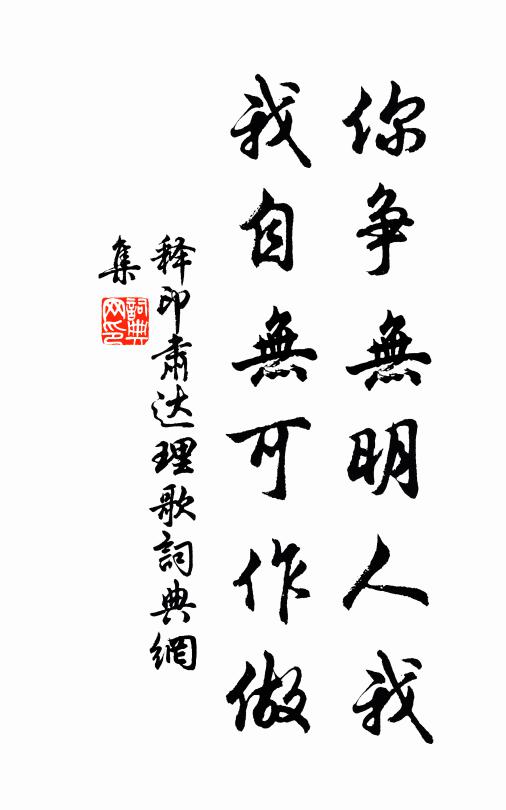 你争無明人我
我自無可作做
释印肃达理歌詞典網
集
詞典
网印